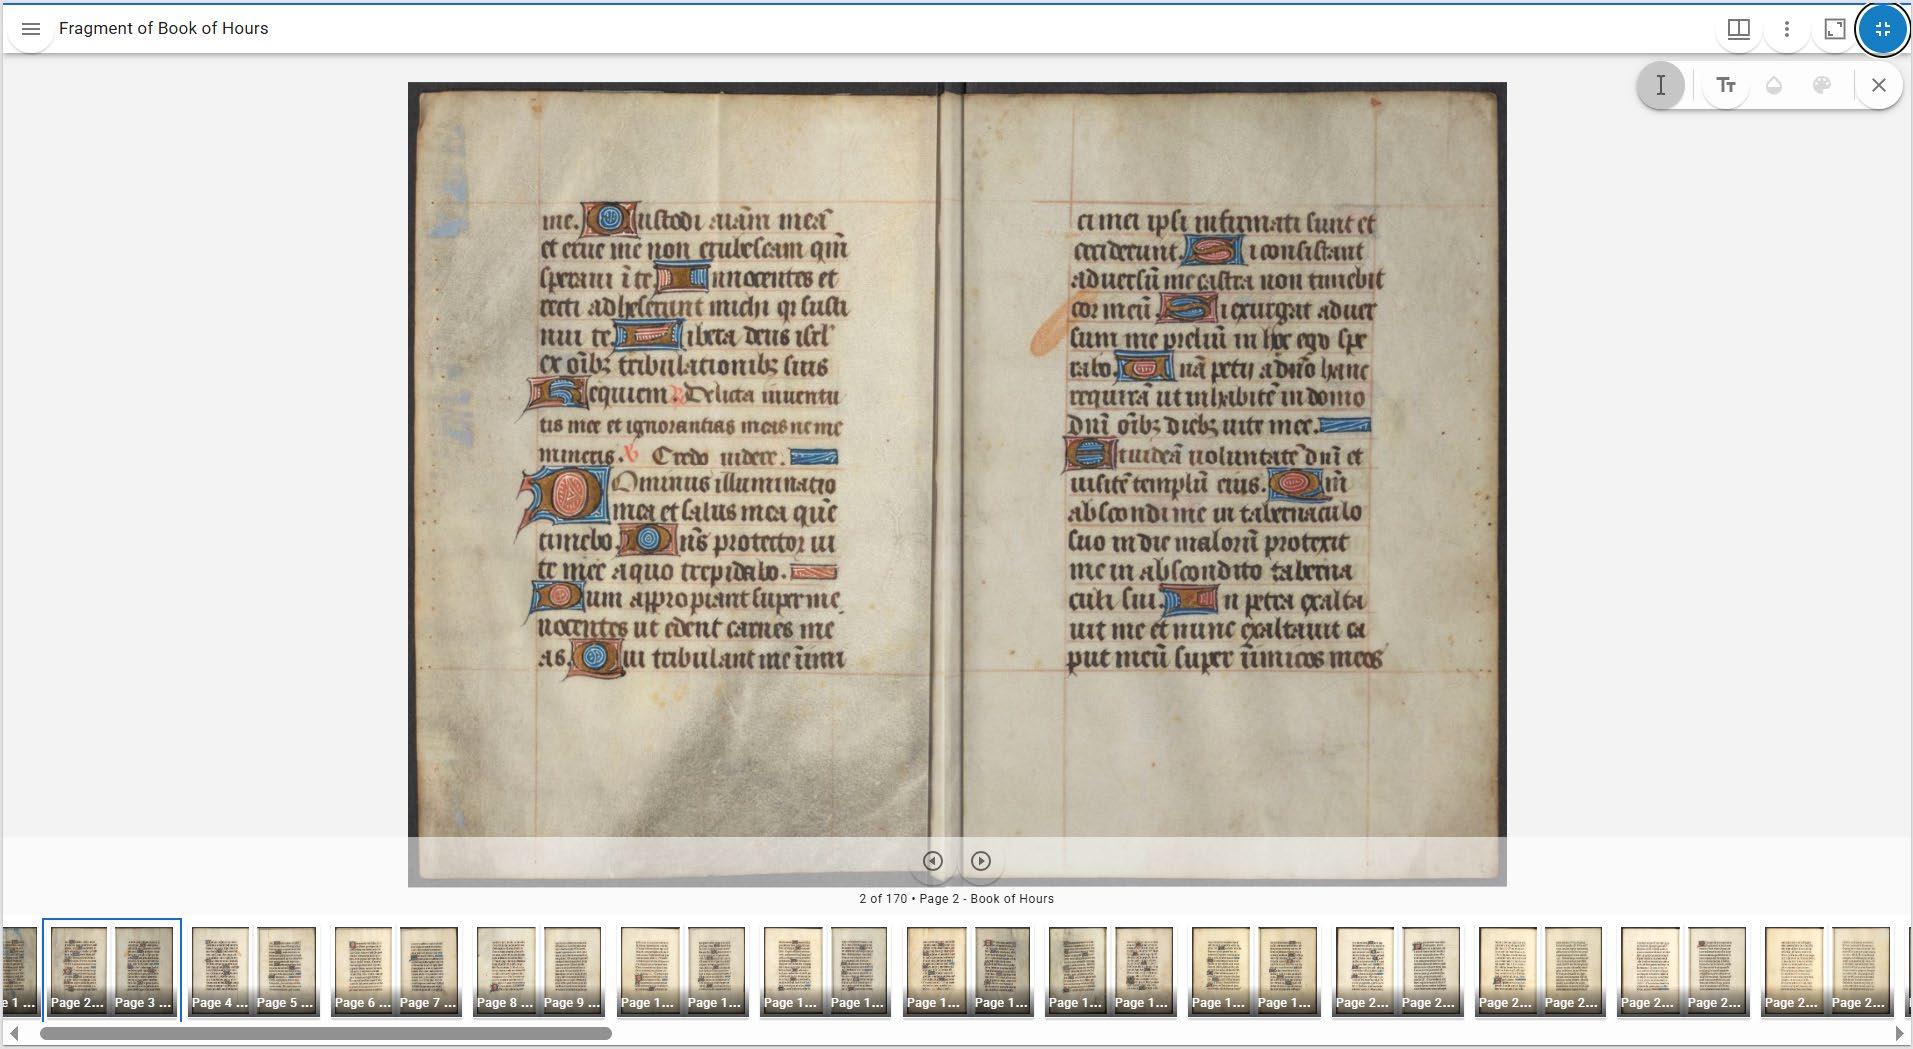 Fragment of Book of Hours
me. Custodi aīam meā
et erue me non erubescam qm̄
speraui ī te. Innocentes et
recti adheserunt michi qꝛ susti
nui te. Libera deus isrl'
ex oībꝫ tribulationibꝫ suis
Requiem. R Delicta iuuentu
tis mee et ignorantias meas ne me
mineris. V Credo uidere.
Dominus illuminatio
mea et salus mea quē
timebo. Dn̄s protector ui
te mee a quo trepidabo.
Dum appropiant super me
nocentes ut edent carnes me
as. Qui tribulant me īimi
ci mei ipsi infirmati sunt et
ceciderunt. Si consistant
aduersū me castra non timebit
cor meū. Si exurgat aduer
sum me preliū in hoc ego spe
rabo. Unā petii a dn̄o hanc
requirā ut inhabitē in domo
dn̄i oībꝫ diebꝫ uite mee.
Et uideā uoluntatē dn̄i et
uisitē templū eius. Qm̄
abscondi me in tabernaculo
suo in die malorū protexit
me in abscondito taberna
culi sui. In petra exalta
uit me et nunc exaltauit ca
put meū super īimicos meos
2 of 170 • Page 2 - Book of Hours
e 1 ...
Page 2...
Page 3 ...
Page 4 ...
Page 5 ...
Page 6 ...
Page 7 ...
Page 8 ...
Page 9 ...
Page 1...
Page 1...
Page 1...
Page 1...
Page 1...
Page 1...
Page 1...
Page 1...
Page 1...
Page 1...
Page 2...
Page 2...
Page 2...
Page 2...
Page 2...
Page 2...
Page 2...
Page 2...